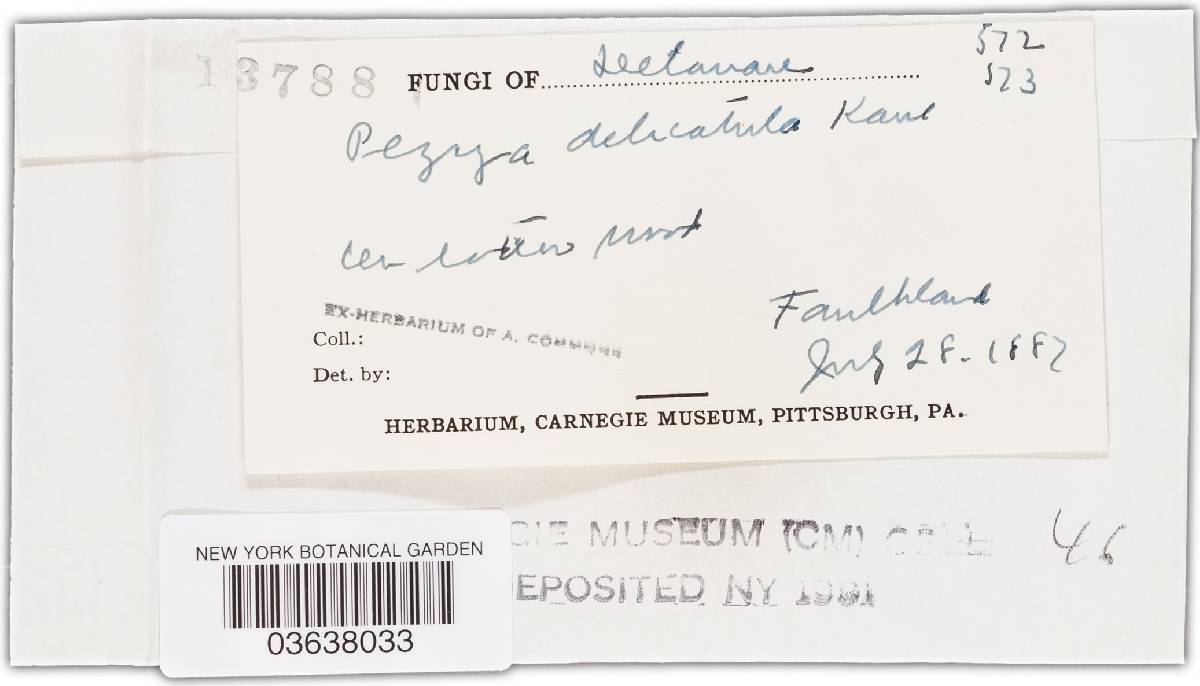 572
13788 FUNGI OF Delaware
573
Pezyza delicatula Karst
on rotten wood
Faulkland
EX-HERBARIUM OF A. COMMONS
Coll.:
July 28-1887
Det. by:
HERBARIUM, CARNEGIE MUSEUM, PITTSBURGH, PA.
GIE MUSEUM (CM) COLL. 46
EPOSITED NY 1981
NEW YORK BOTANICAL GARDEN
03638033